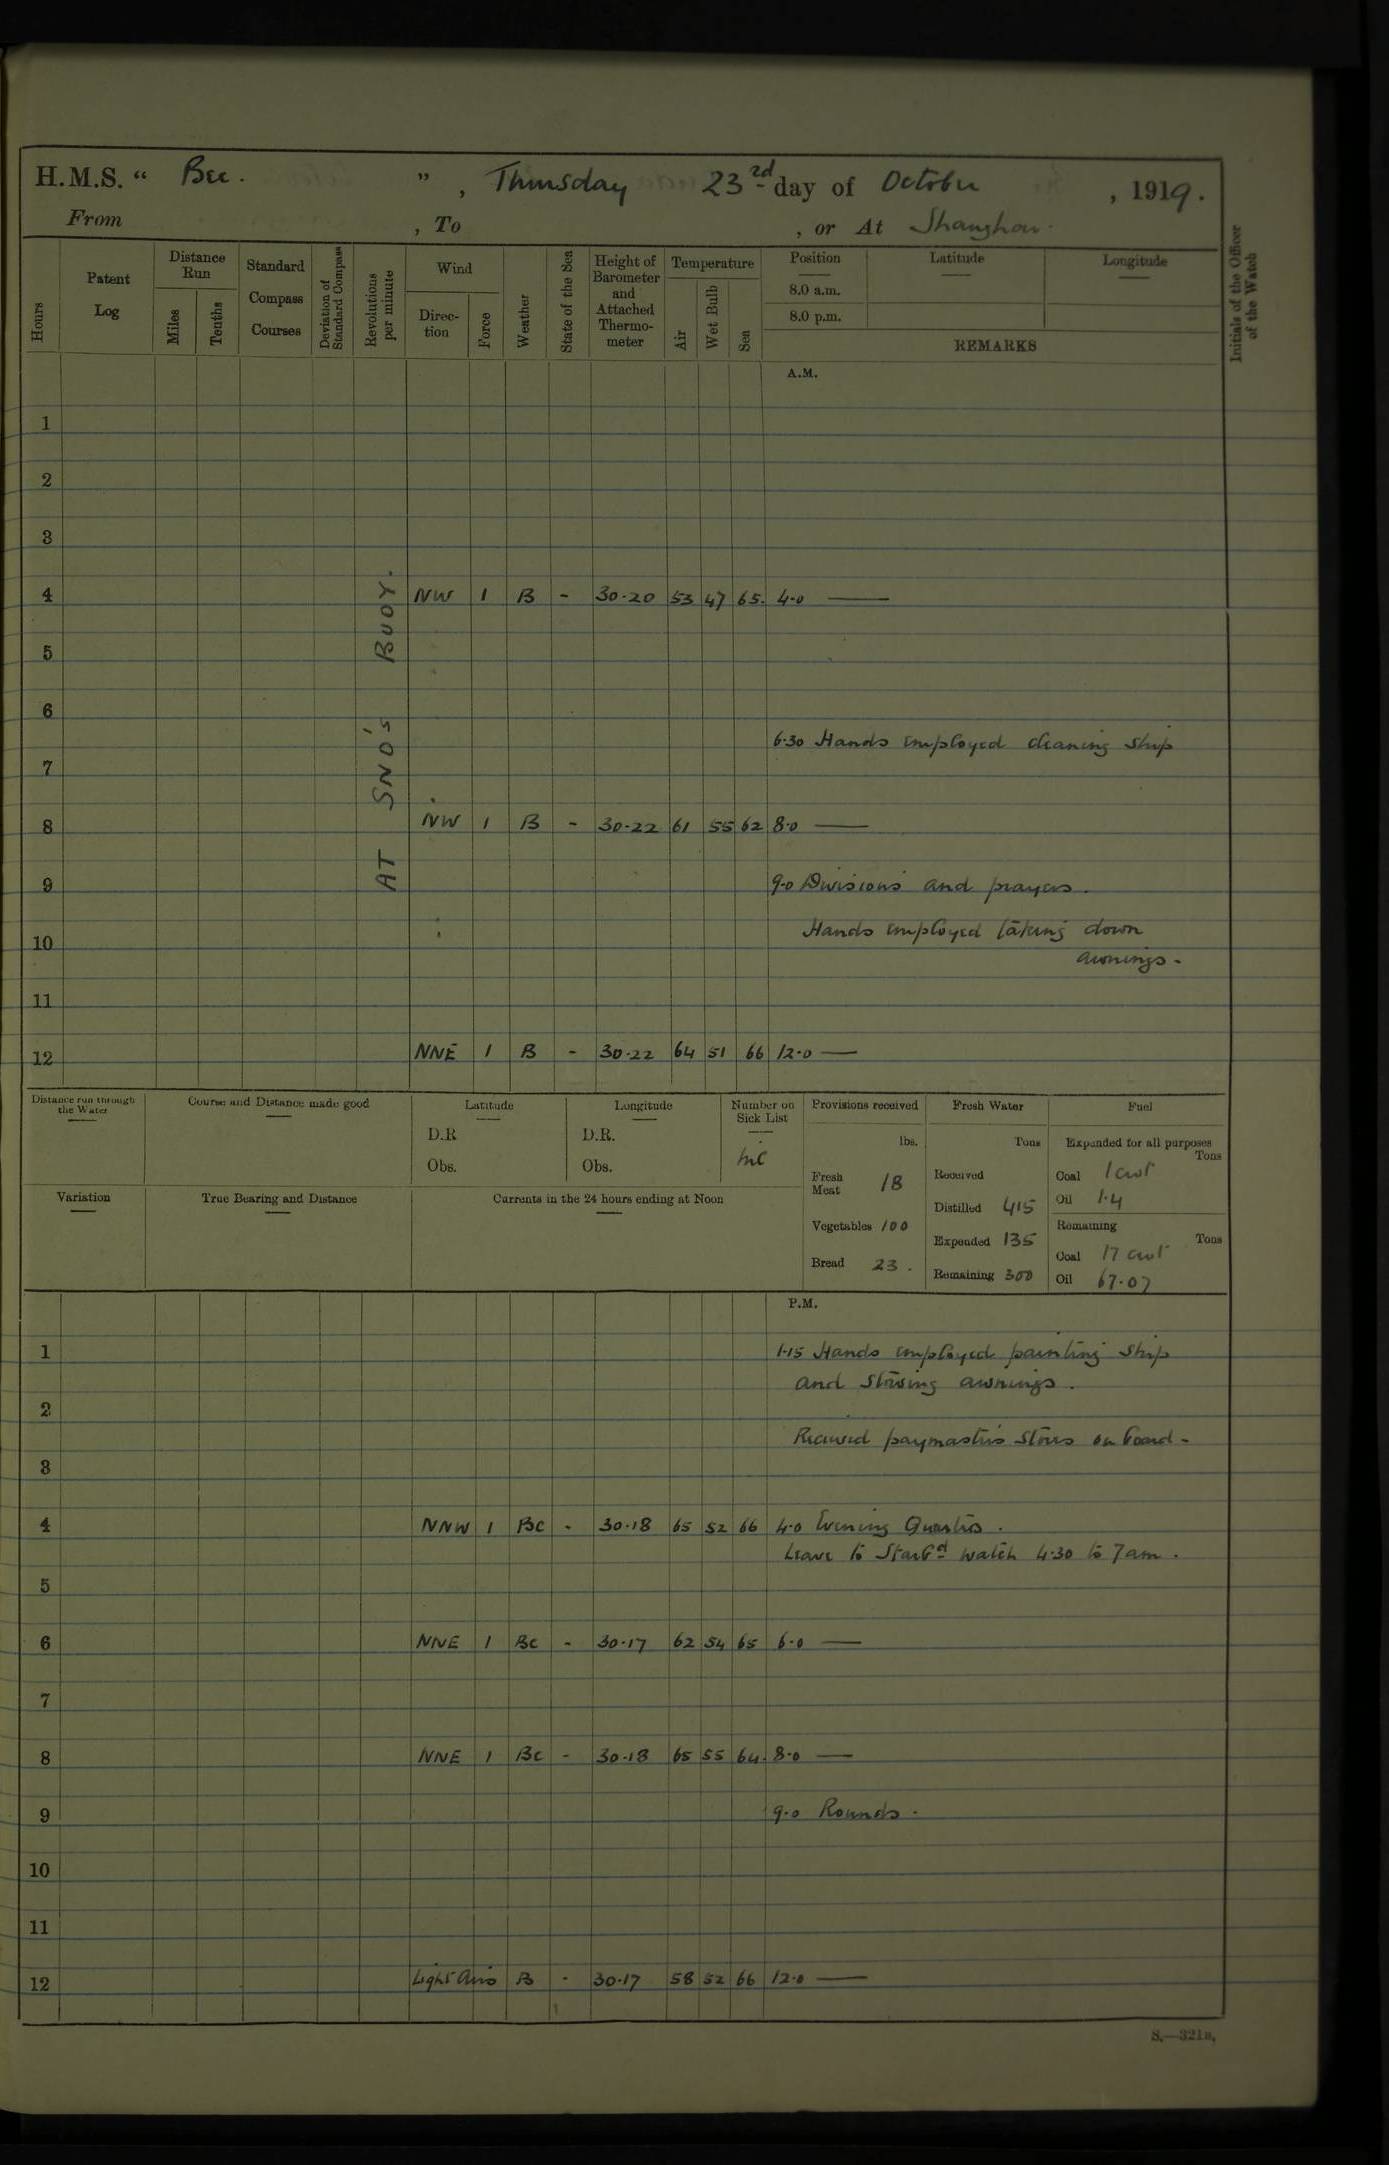 H.M.S. " Bee. ", Thursday 23rd day of October, 1919.
From , To , or At Shanghai.
Hours
Patent Log
Distance Run
Miles
Tenths
Standard Compass Courses
Deviation of Standard Compass
Revolutions per minute
Wind
Direction
Force
Weather
State of the Sea
Height of Barometer and Attached Thermometer
Temperature
Air
Wet Bulb
Sea
Position
8.0 a.m.
8.0 p.m.
Latitude
Longitude
REMARKS
Initials of the Officer of the Watch
A.M.
AT SNO's BUOY.
1
2
3
4 NW 1 B - 30.20 53 47 65. 4.0 ——
5
6
6.30 Hands employed cleaning ship
7
8 NW 1 B - 30.22 61 55 62 8.0 ——
9 9.0 Divisions and prayers.
10 Hands employed taking down
awnings -
11
12 NNE 1 B - 30.22 64 51 66 12.0 ——
Distance run through the Water
Course and Distance made good
Latitude
D.R
Obs.
Longitude
D.R.
Obs.
Number on Sick List
nil
Provisions received
lbs.
Fresh Meat 18
Vegetables 100
Bread 23.
Fresh Water
Tons
Received
Distilled 415
Expended 135
Remaining 300
Fuel
Expended for all purposes
Tons
Coal 1 cwt
Oil 1.4
Remaining
Tons
Coal 17 cwt
Oil 67.07
Variation
True Bearing and Distance
Currents in the 24 hours ending at Noon
P.M.
1 1.15 Hands employed painting ship
and stowing awnings.
2
Received paymasters stores on board -
3
4 NNW 1 BC - 30.18 65 52 66 4.0 Evening Quarters.
Leave to Starbd watch 4.30 to 7am.
5
6 NNE 1 BC - 30.17 62 54 65 6.0 ——
7
8 NNE 1 BC - 30.18 65 55 64. 8.0 ——
9 9.0 Rounds.
10
11
12 Light airs B - 30.17 58 52 66 12.0 ——
S.—321a.